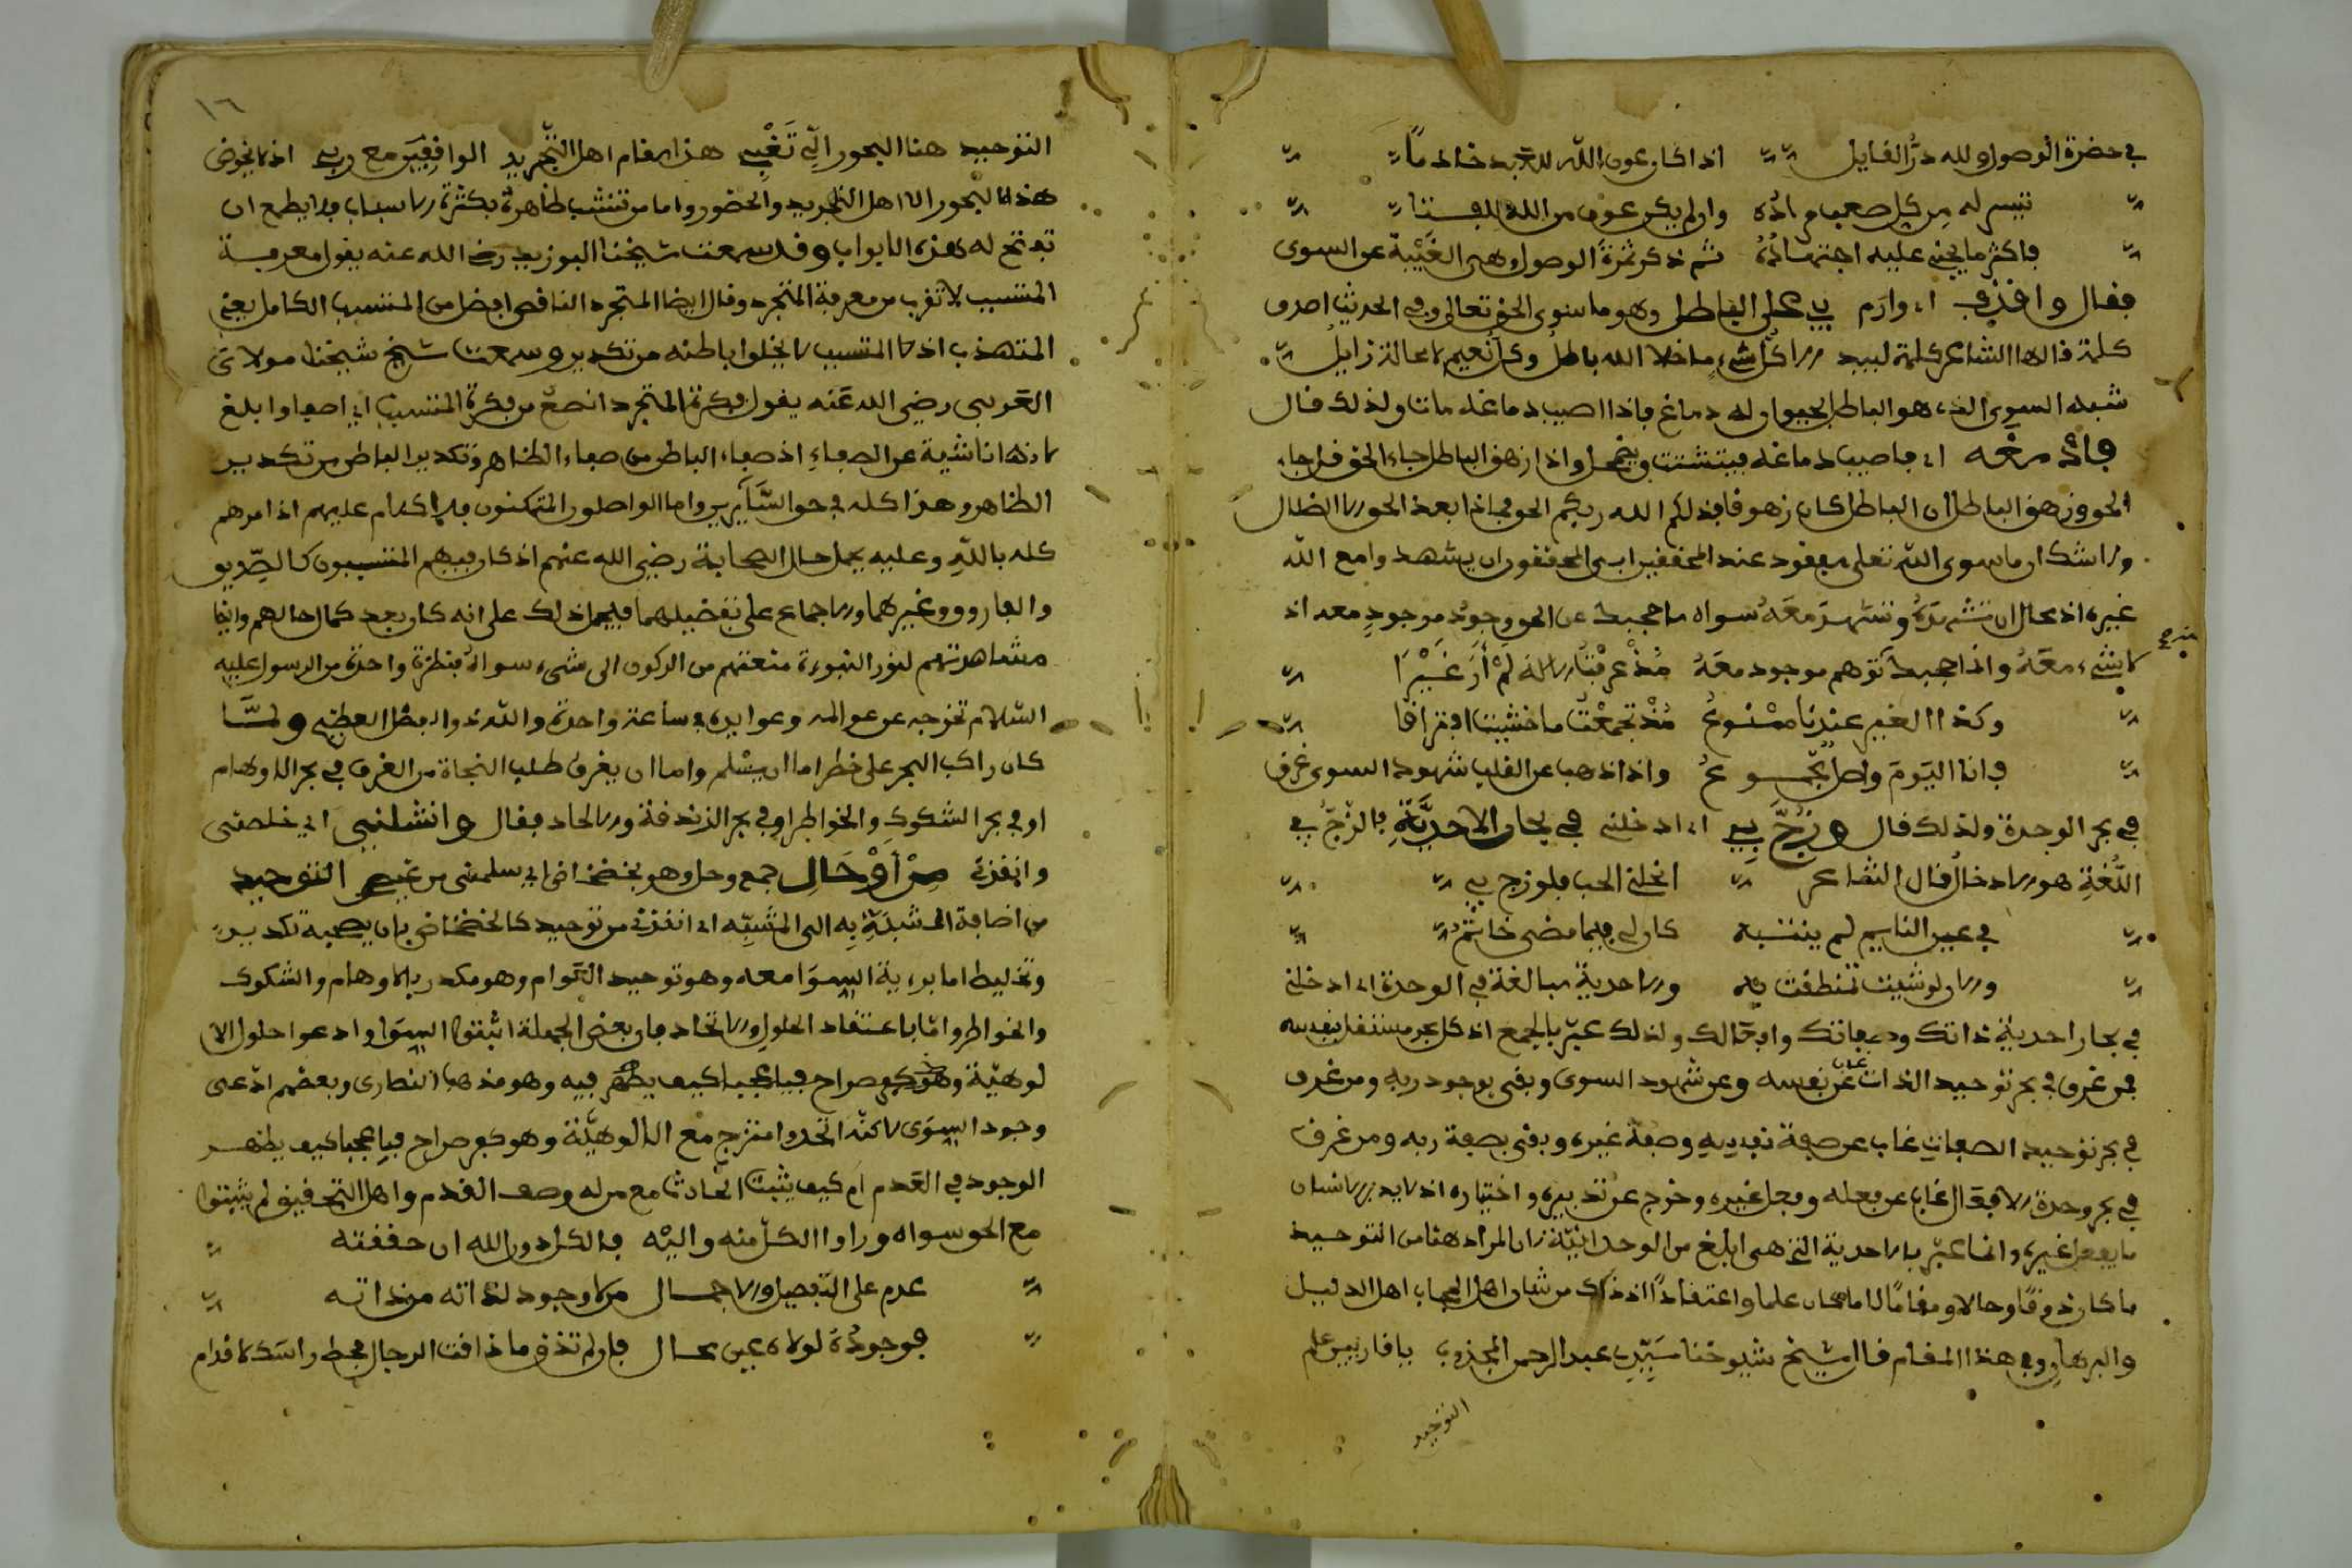 في حضرة الوصول ولله در القايل اذا كان عون الله للعبد خادما
تيسر له من كل صعب مراده وان لم يكن عون من الله للفتا
فاكثر ما يجني عليه اجتهاده ثم ذكر ثمرة الوصول وهي الغيبة عن السوى
فقال واقذف اي وارم بي على الباطل وهو ما سوى الحق تعالى وفي الحديث اصدق
كلمة قالها الشاعر كلمة لبيد الا كل شيء ما خلا الله باطل وكل نعيم لا محالة زايل
شبه السوى الذي هو الباطل بحيوان له دماغ فاذا اصيب دماغه مات ولذلك قال
فادمغه اي فاصيب دماغه فيتشتت ويضمحل واذا زهق الباطل جاء الحق قل جاء
الحق وزهق الباطل ان الباطل كان زهوقا فذلكم الله ربكم الحق فماذا بعد الحق الا الضلال
ولا شك ان ما سوى الله تعلى مفقود عند المحققين ابى المحققون ان يشهدوا مع الله
غيره اذ محال ان تشهده وتشهد معه سواه ما حجبك عن الحق وجود موجود معه اذ
لا شيء معه وانما حجبك توهم موجود معه مذ عرفت الاله لم ار غيرا
وكذا الغير عندنا ممنوع مذ تجمعت ما خشيت افتراقا
فانا اليوم واصل مجموع واذا ذهب عن القلب شهود السوى غرق
في بحر الوحدة ولذلك قال وزج بي اي ادخلني في بحار الاحدية فالزج في
اللغة هو الادخال قال الشاعر انحلني الحب فلو زج بي
في عين النايم لم ينتبه كان لي فيما مضى خاتم
والان لو شيت تمنطقت به والاحدية مبالغة في الوحدة اي ادخلني
في بحار احدية ذاتك وصفاتك وافعالك ولذلك عبر بالجمع اذ كل بحر مستقل بنفسه
فمن غرق في بحر توحيد الذات غاب عن نفسه وعن شهود السوى وبقي بوجود ربه ومن غرق
في بحر توحيد الصفات غاب عن صفة نفسه وصفة غيره وبقي بصفة ربه ومن غرق
في بحر وحدة الافعال غاب عن فعله وفعل غيره وخرج عن تدبيره واختياره اذ لا يدبر الانسان
ما يفعل غيره وانما عبر بالاحدية التي هي ابلغ من الوحدانية لان المراد هنا من التوحيد
ما كان ذوقا وحالا ومقاما لا ما كان علما واعتقادا اذ ذاك من شان اهل الحجاب اهل الدليل
والبرهان وفي هذا المقام قال شيخ شيوخنا سيدي عبد الرحمن المجذوب يا قاريين علم
التوحيد
١٦
التوحيد هنا البحور التي تغبي هذا مقام اهل التجريد الواقفين مع ربي اذ لا يخوض
هذه البحور الا اهل التجريد والحضور واما من تنشب ظاهره بكثرة الاسباب فلا يطمع ان
تفتح له هذه الابواب وقد سمعت شيخنا البوزيدي رضي الله عنه يقول معرفة
المتسبب لا تقرب من معرفة المتجرد وقال ايضا المتجرد الناقص افضل من المتسبب الكامل يعني
المتهذب اذ المتسبب لا يخلوا باطنه من تكدير وسمعت شيخ شيخنا مولاي
العربي رضي الله عنه يقول فكرة المتجرد انصع من فكرة المتسبب اي اصفا وابلغ
لانها ناشية عن الصفاء اذ صفاء الباطن من صفاء الظاهر وتكدير الباطن من تكدير
الظاهر وهذا كله في حق السايرين واما الواصلون المتمكنون فلا كلام عليهم اذ امرهم
كله بالله وعليه يحمل حال الصحابة رضي الله عنهم اذ كان فيهم المتسببون كالصديق
والفاروق وغيرهما والاجماع على تفضيلهما فيحمل ذلك على انه كان بعد كمال حالهم وايضا
مشاهدتهم لنور النبوءة منعتهم من الركون الى شيء سواه فنظرة واحدة من الرسول عليه
السلام تخرجه عن عوالمه وعوايده في ساعة واحدة والله ذو الفضل العظيم ولما
كان راكب البحر على خطر اما ان يسلم واما ان يغرق طلب النجاة من الغرق في بحر الاوهام
او في بحر الشكوك والخواطر او في بحر الزندقة والالحاد فقال وانشلني اي خلصني
وانقذني من اوحال جمع وحل وهو تخضخاض اي سلمني من غيم التوحيد
من اضافة المشبه به الى المشبه اي انقذني من توحيد كالخضخاض بان يصحبه تكدير
وتخليط اما برءية السوا معه وهو توحيد العوام وهو مكدر بالاوهام والشكوك
والخواطر واما باعتقاد الحلول والاتحاد فان بعض الجهلة اثبتوا السوا وادعوا حلول الا
لوهية وهو كفر صراح فيا عجبا كيف يظهر فيه وهو مذهب النصارى وبعضهم ادعى
وجود السوى لاكنه اتحد وامتزج مع الالوهية وهو كفر صراح فيا عجبا كيف يظهر
الوجود في العدم ام كيف يثبت الحادث مع من له وصف القدم واهل التحقيق لم يثبتوا
مع الحق سواه وراوا الكل منه واليه فالكل دون الله ان حققته
عدم على التفصيل والاجمال من لا وجود لذاته من ذاته
فوجوده لولاه عين محال فان لم تذق ما ذاقت الرجال فحط راسك لاقدام